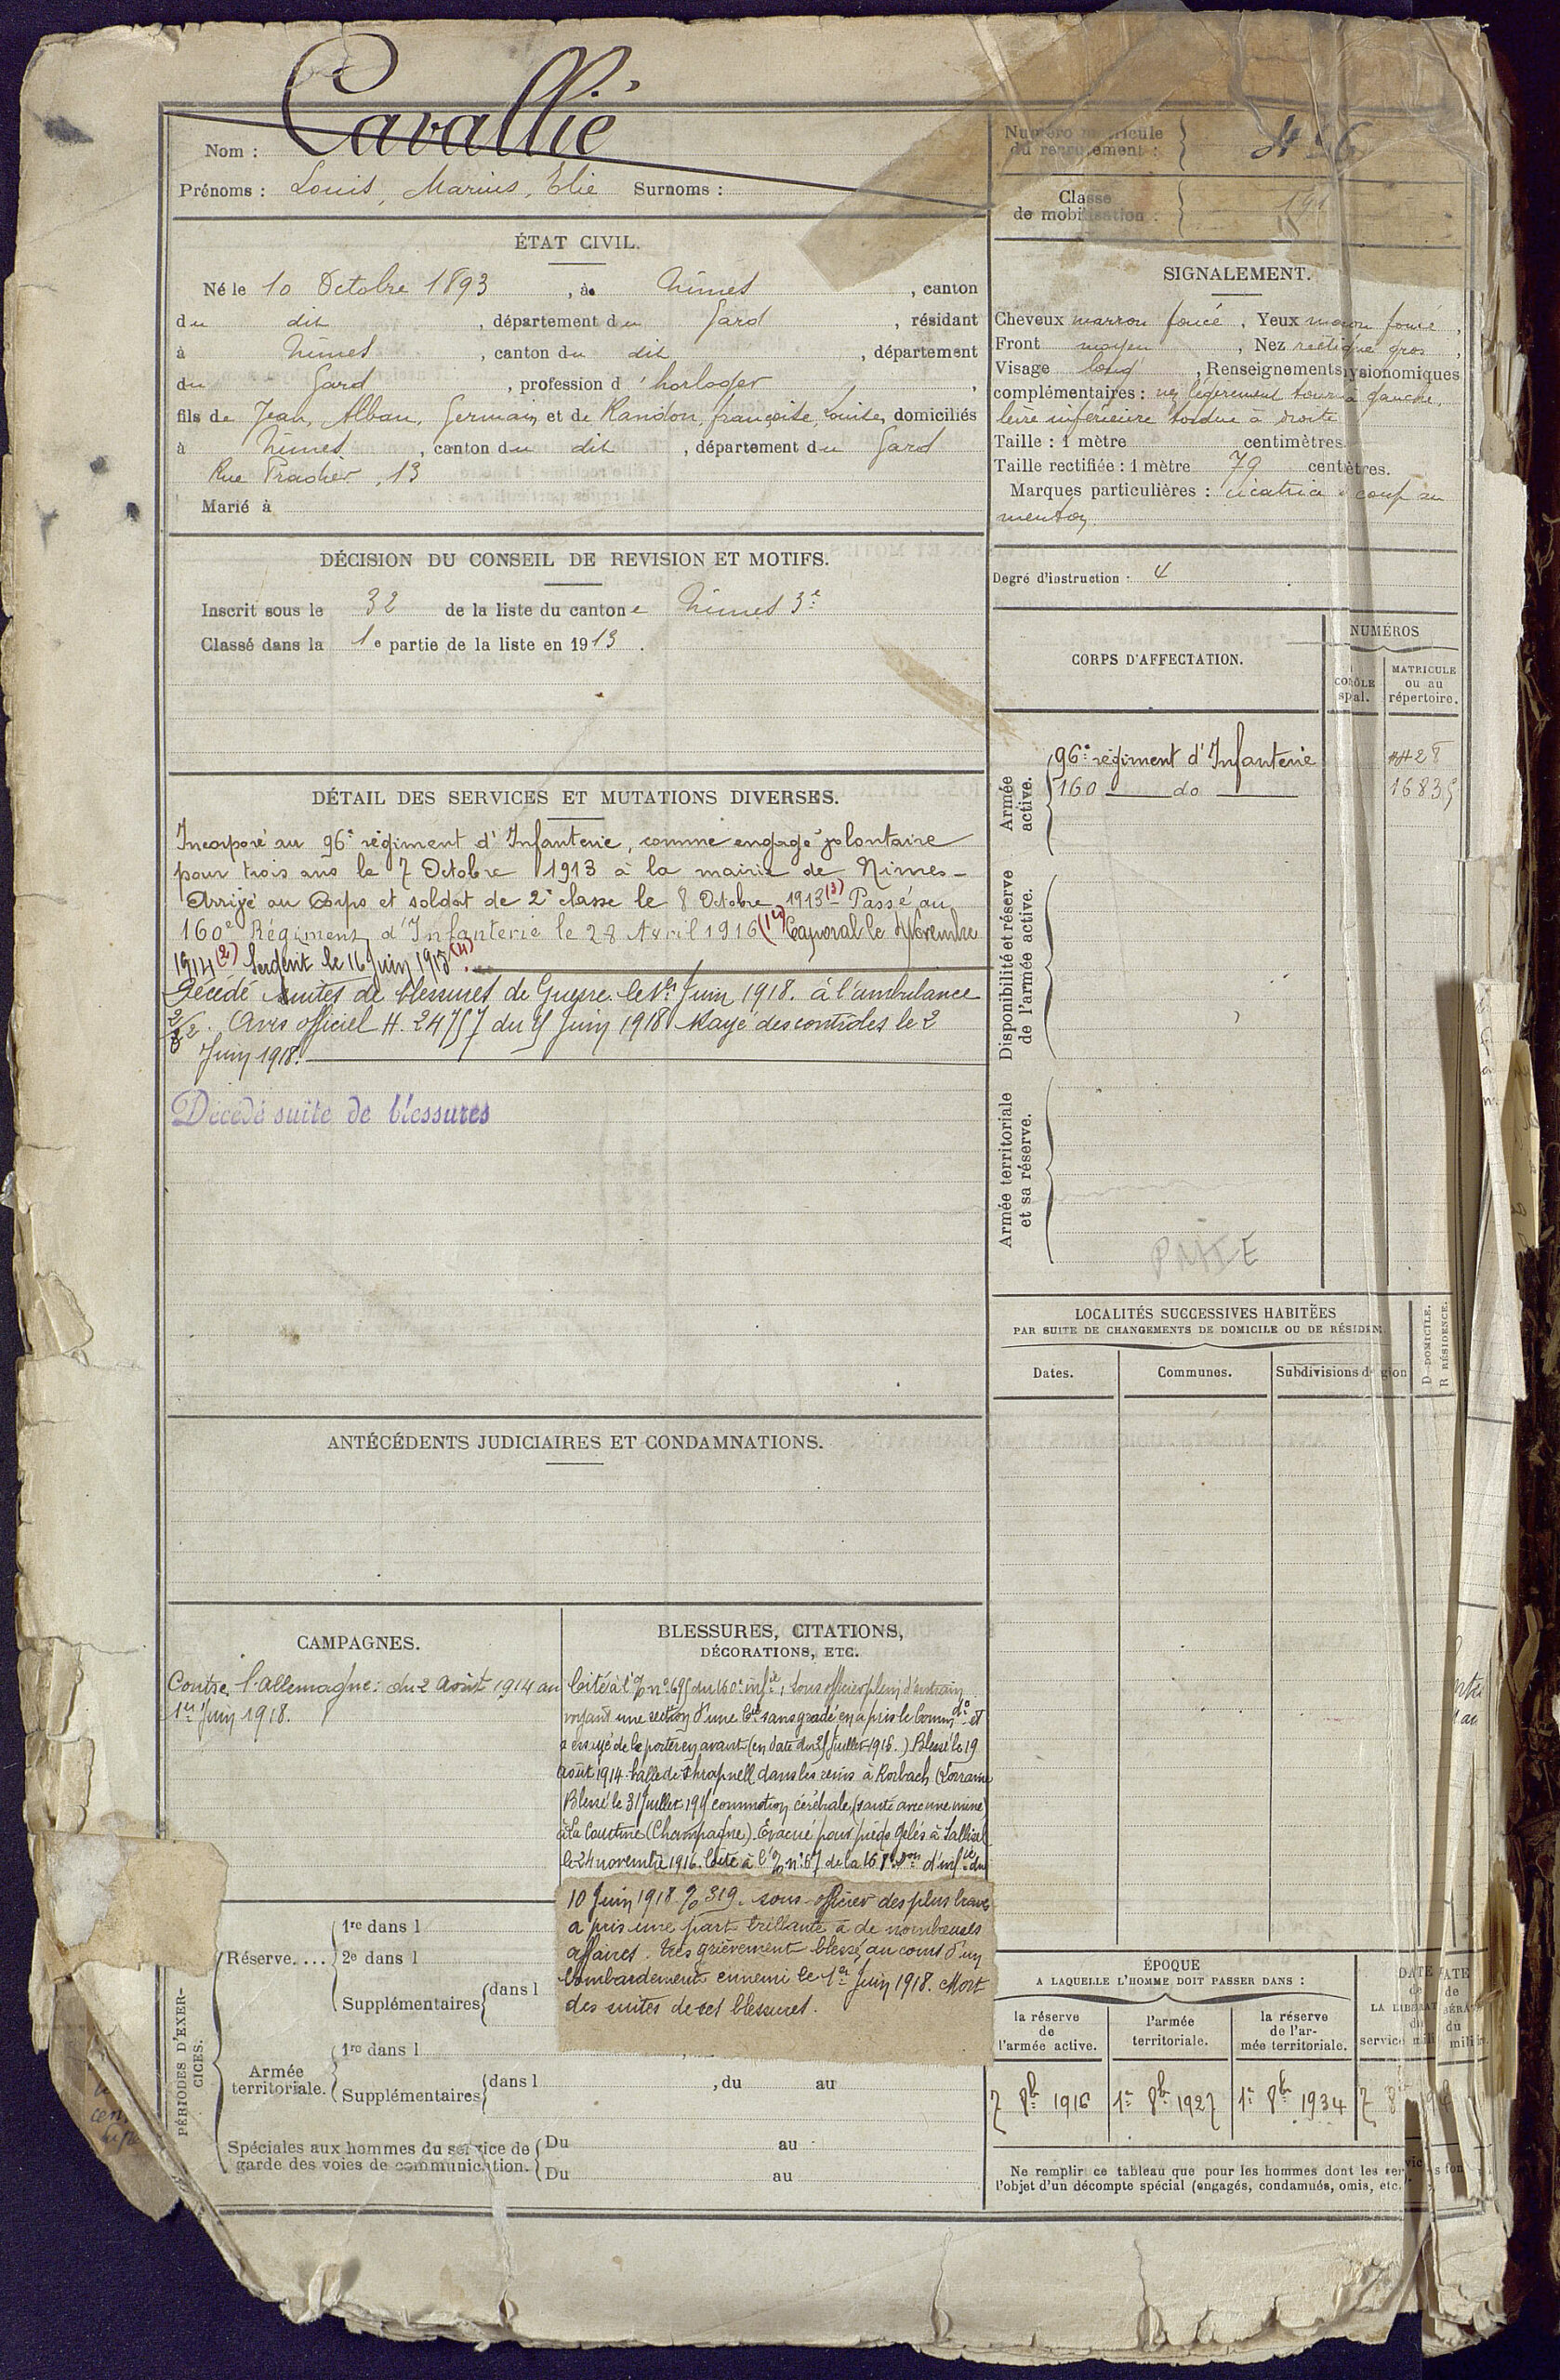 Cavallié
Nom :
Prénoms : Louis, Marius, Elie Surnoms :
Numéro matricule
du recrutement :
Classe
de mobilisation :
ÉTAT CIVIL.
Né le 10 Octobre 1893, à Nîmes, canton
du dit, département du Gard, résidant
à Nîmes, canton du dit, département
du Gard, profession d'horloger,
fils de Jean, Alban, Germain et de Randon, françoise, Louise, domiciliés
à Nîmes, canton du dit, département du Gard
Rue Pradier, 13
Marié à
SIGNALEMENT.
Cheveux marron foncé, Yeux marron foncé,
Front moyen, Nez rectiligne gros,
Visage long, Renseignements ysionomiques
complémentaires : nez légèrement tourné à gauche,
lèvre inférieure tordue à droite
Taille : 1 mètre centimètres.
Taille rectifiée : 1 mètre 79 cent ètres.
Marques particulières : cicatrice coup au
menton.
Degré d'instruction : 4
DÉCISION DU CONSEIL DE REVISION ET MOTIFS.
Inscrit sous le 32 de la liste du canton e Nîmes 3e
Classé dans la 1e partie de la liste en 1913.
CORPS D'AFFECTATION.
NUMÉROS
CONTRÔLE
spécial.
MATRICULE
ou au
répertoire.
Armée
active.
96e régiment d'Infanterie
160 do
16835
Disponibilité et réserve
de l'armée active.
Armée territoriale
et sa réserve.
DÉTAIL DES SERVICES ET MUTATIONS DIVERSES.
Incorporé au 96e régiment d'Infanterie, comme engagé volontaire
pour trois ans le 7 Octobre 1913 à la mairie de Nîmes -
Arrivé au Corps et soldat de 2e classe le 8 Octobre 1913 (3) - Passé au
160e Régiment d'Infanterie le 28 Avril 1916 Caporal le Novembre
1914 (2) Sergent le 16 Juin 1915 (4).
Décédé suites de blessures de Guerre le 1er Juin 1918. à l'ambulance
2/2. Avis officiel H. 24757 du Juin 1918 Rayé des contrôles le 2
Juin 1918.
Décédé suite de blessures
LOCALITÉS SUCCESSIVES HABITÉES
PAR SUITE DE CHANGEMENTS DE DOMICILE OU DE RÉSIDEN
Dates.
Communes.
Subdivisions d gion
D-DOMICILE.
R RÉSIDENCE.
ANTÉCÉDENTS JUDICIAIRES ET CONDAMNATIONS.
CAMPAGNES.
Contre l'Allemagne : du 2 Août 1914 au
1er Juin 1918.
BLESSURES, CITATIONS,
DÉCORATIONS, ETC.
Cité à l'o/ n° 695 du 160e infie, sous officier plein d'entrain,
voyant une section d'une Cie sans gradé en a pris le commdt et
a essayé de la porter en avant (en date du 25 Juillet 1916.) Blessé le 19
Août 1914 balle de shrapnell dans les reins à Rorbach (Lorraine
Blessé le 31 Juillet 1915 commotion cérébrale, (sauté avec une mine)
à la Courtine (Champagne). Évacué pour pieds gelés à Sallisel
le 24 novembre 1916. Cité à l'o/ n° 67 de la 168e Don d'infie du
10 Juin 1918 o/ 319. sous-officier des plus braves
a pris une part brillante à de nombreuses
affaires. très grièvement blessé au cours d'un
bombardement ennemi le 1er Juin 1918. Mort
des suites de ses blessures.
PÉRIODES D'EXER-
CICES.
Réserve....
1re dans l
2e dans l
Supplémentaires dans l
Armée
territoriale.
1re dans l
Supplémentaires dans l , du au
Spéciales aux hommes du service de
garde des voies de communication.
Du au
Du au
ÉPOQUE
A LAQUELLE L'HOMME DOIT PASSER DANS :
la réserve
de
l'armée active.
l'armée
territoriale.
la réserve
de l'ar-
mée territoriale.
DATE
de
LA LIBÉRAT
du
service mili
7 8bre 1916
1er 8bre 1927
1er 8bre 1934
Ne remplir ce tableau que pour les hommes dont les services font
l'objet d'un décompte spécial (engagés, condamnés, omis, etc.